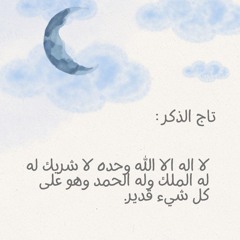 تاج الذكر :
لا اله الا الله وحده لا شريك له
له الملك وله الحمد وهو على
كل شيء قدير.